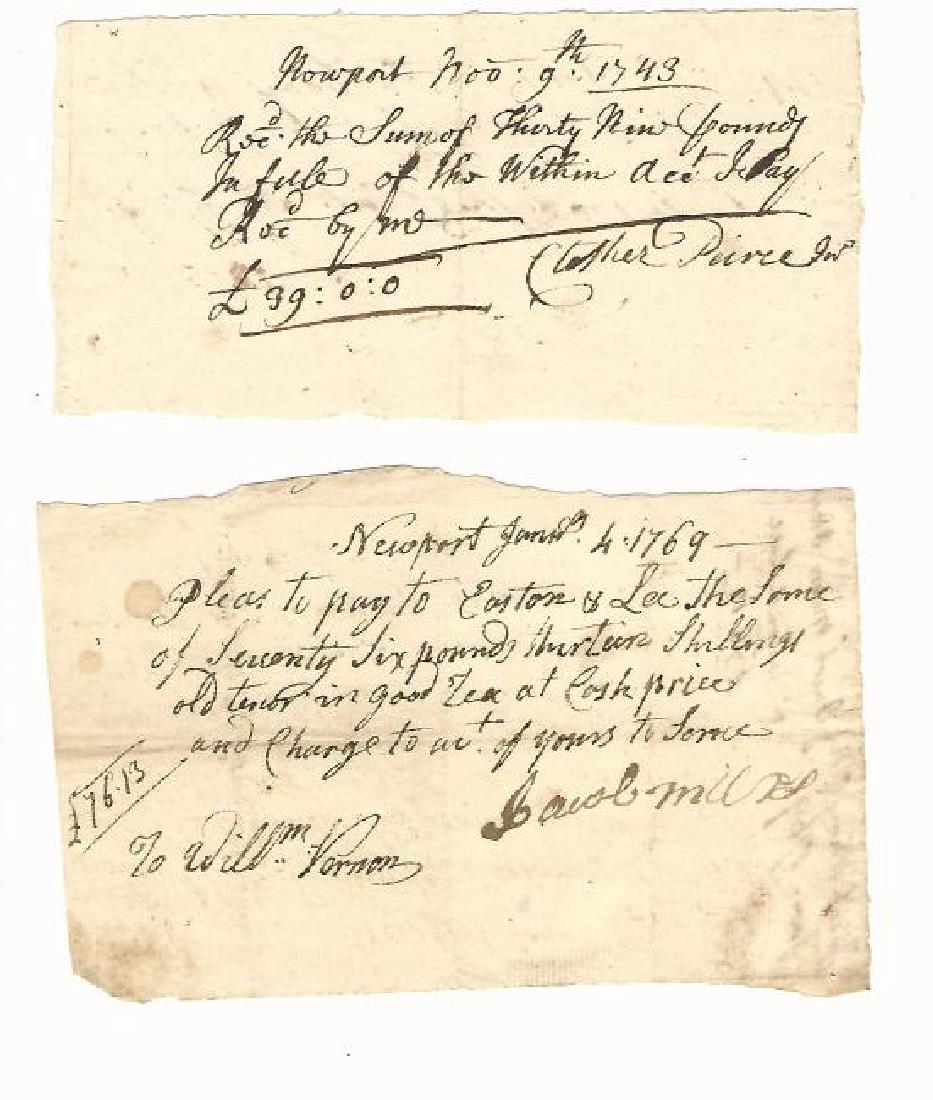 Newport Nov: 9th: 1743
Recd. the Sum of Thirty Nine pounds
In full of the Within Acct I Say
Recd by me
£ 39:0:0 Clother Peirce Jur
Newport Janury. 4.1769
Pleas to pay to Easton & Lee the Some
of Seventy Six pounds thurteen Shillings
old tenor in good Tea at Cash price
and Charge to act. of yours to Serve
£76.13
Jacob
To Willm: Vernon